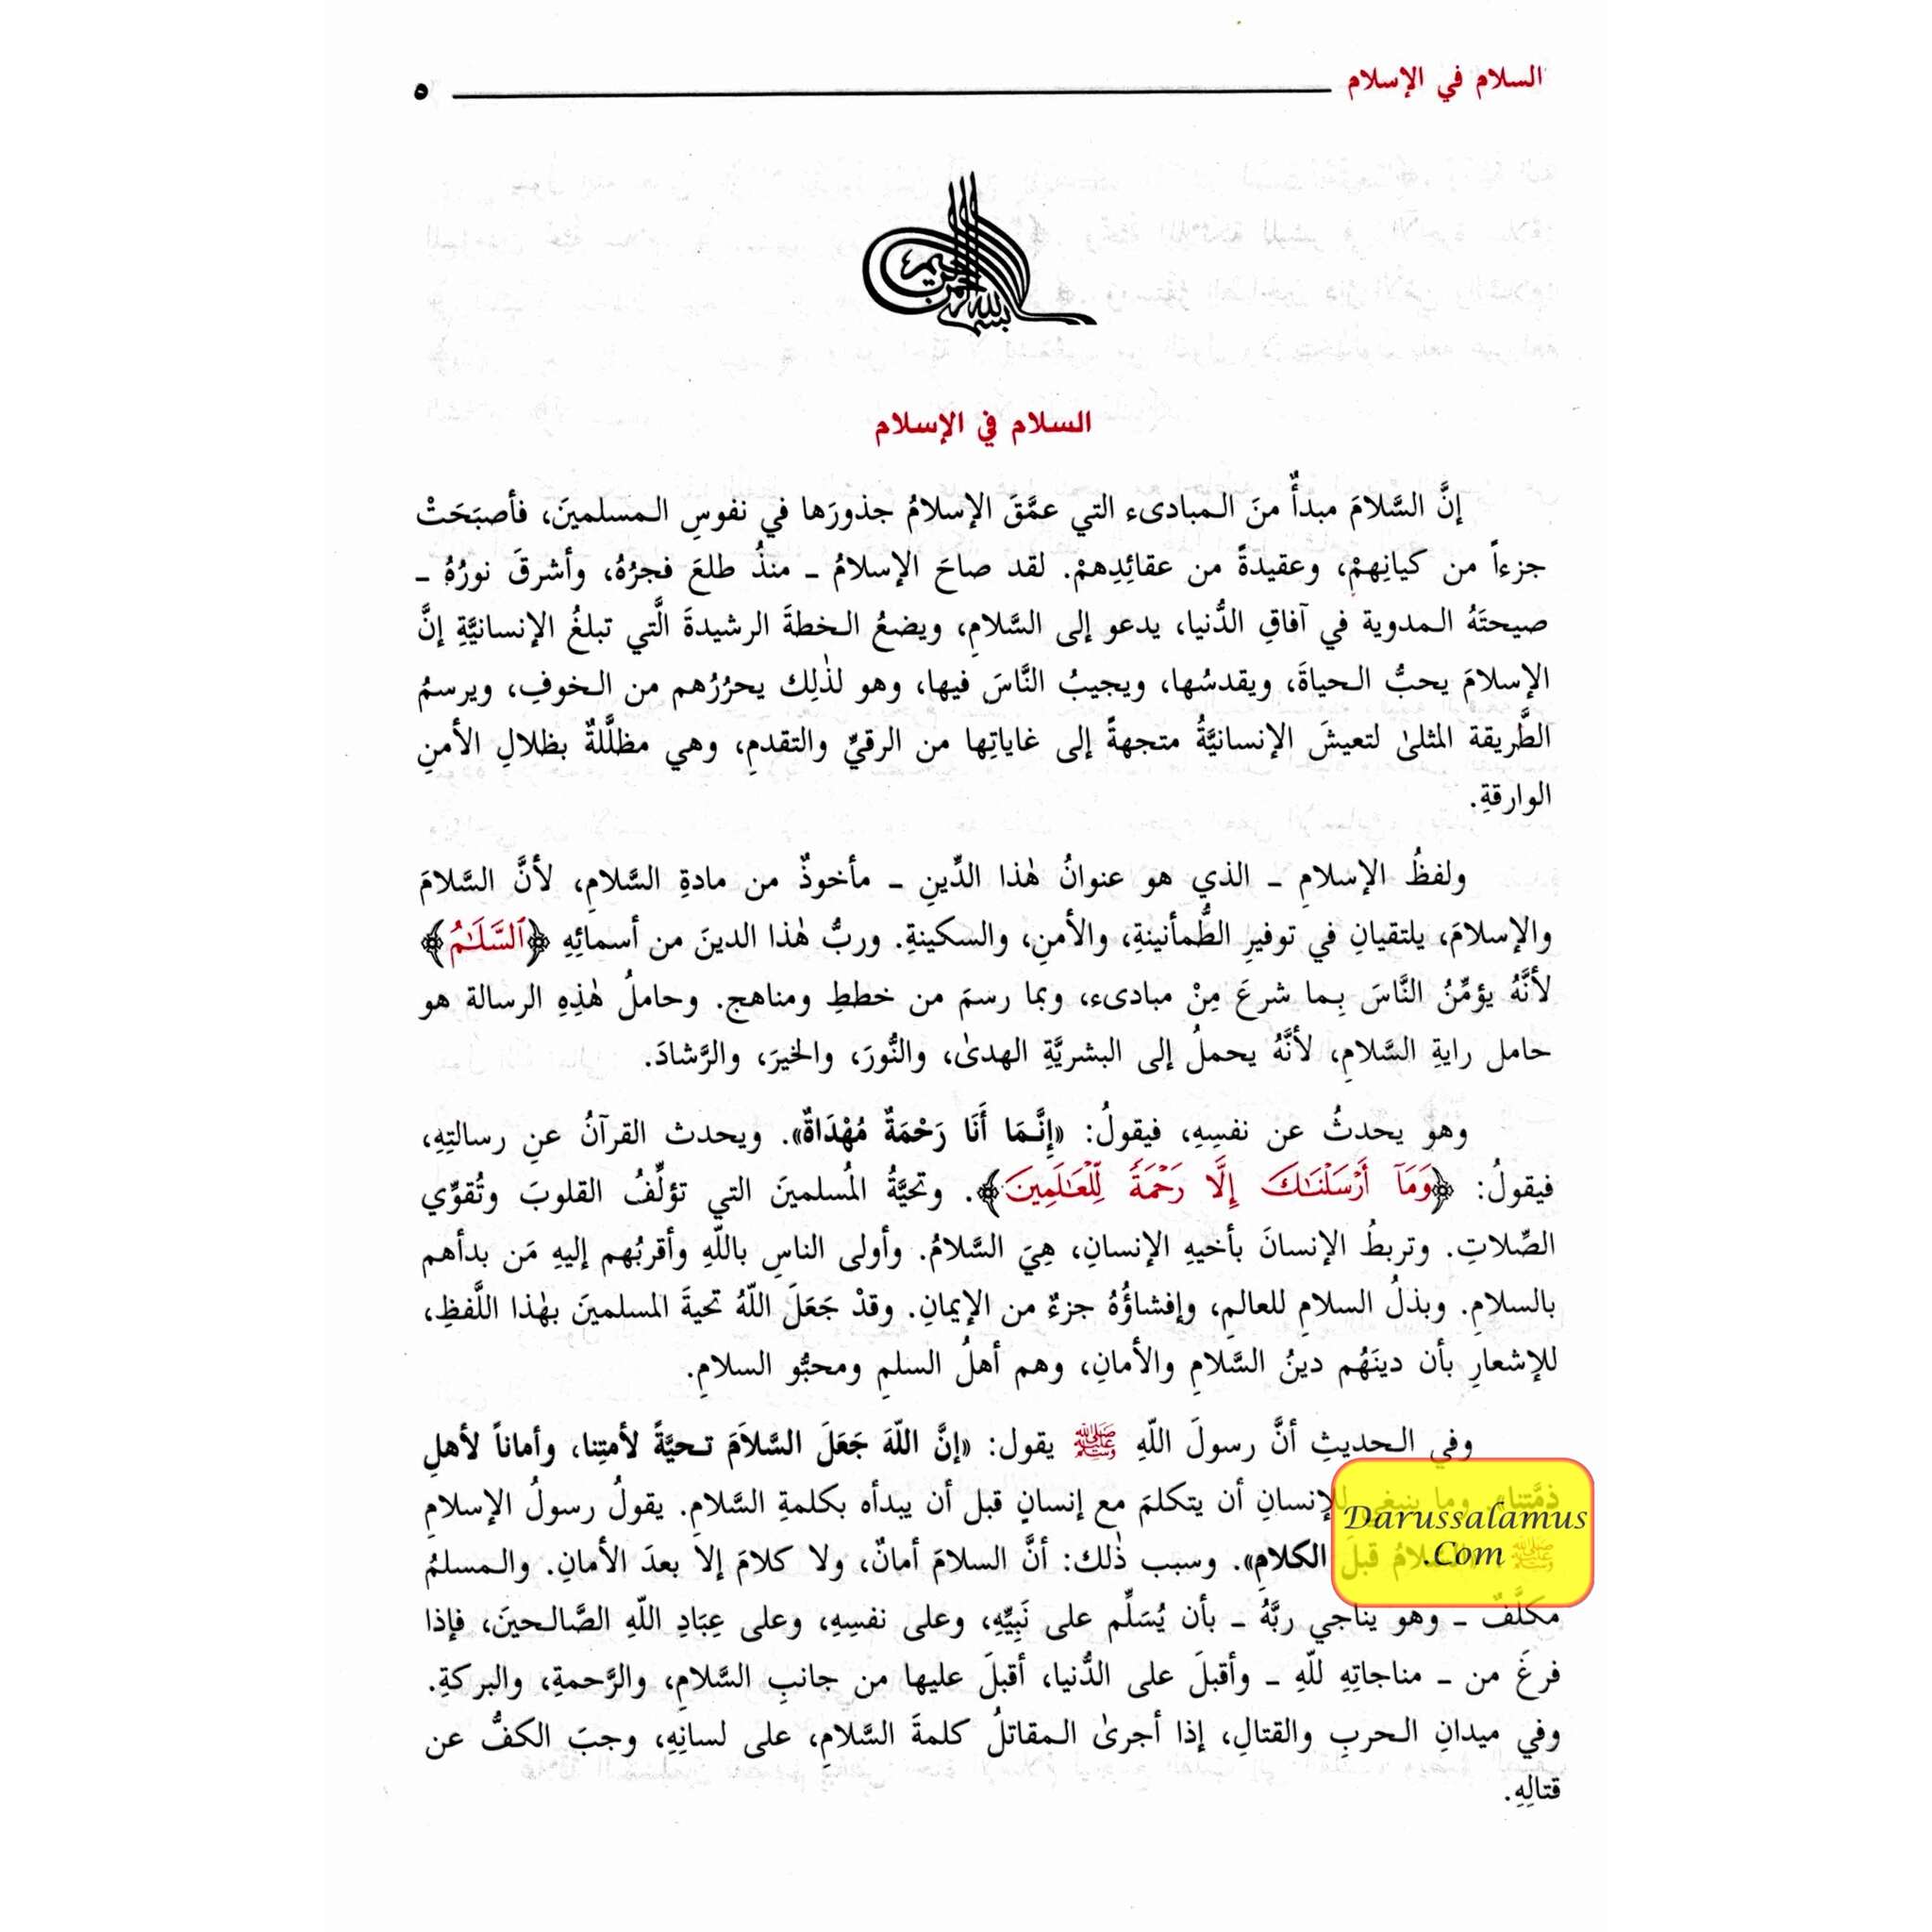 السلام في الإسلام ٥
بسم الله الرحمن الرحيم
السلام في الإسلام
إنَّ السَّلامَ مبدأٌ منَ المبادىء التي عمَّقَ الإسلامُ جذورَها في نفوسِ المسلمينَ، فأصبَحَتْ
جزءاً من كيانِهمْ، وعقيدةً من عقائِدِهمْ. لقد صاحَ الإسلامُ ـ منذُ طلعَ فجرُهُ، وأشرقَ نورُهُ ـ
صيحتَهُ المدوية في آفاقِ الدُّنيا، يدعو إلى السَّلامِ، ويضعُ الخطةَ الرشيدةَ الَّتي تبلغُ الإنسانيَّةِ إنَّ
الإسلامَ يحبُّ الحياةَ، ويقدسُها، ويجيبُ النَّاسَ فيها، وهو لذٰلِك يحرُرُهم من الخوفِ، ويرسمُ
الطَّريقة المثلىٰ لتعيشَ الإنسانيَّةُ متجهةً إلى غاياتِها من الرقيِّ والتقدمِ، وهي مظلَّلةٌ بظلالِ الأمنِ
الوارقةِ.
ولفظُ الإسلامِ ـ الذي هو عنوانُ هٰذا الدِّينِ ـ مأخوذٌ من مادةِ السَّلامِ، لأنَّ السَّلامَ
والإسلامَ، يلتقيانِ في توفيرِ الطُّمأنينةِ، والأمنِ، والسكينةِ. وربُّ هٰذا الدينَ من أسمائِهِ ﴿ٱلسَّلَـٰمُ﴾
لأنَّهُ يؤمِّنُ النَّاسَ بِما شرعَ مِنْ مبادىء، وبما رسمَ من خططِ ومناهج. وحاملُ هٰذِهِ الرسالة هو
حامل رايةِ السَّلامِ، لأنَّهُ يحملُ إلى البشريَّةِ الهدىٰ، والنُّورَ، والخيرَ، والرَّشادَ.
وهو يحدثُ عن نفسِهِ، فيقولُ: «إِنَّمَا أَنَا رَحْمَةٌ مُهْدَاةٌ». ويحدث القرآنُ عنِ رسالتِهِ،
فيقولُ: ﴿وَمَآ أَرْسَلْنَـٰكَ إِلَّا رَحْمَةً لِّلْعَـٰلَمِينَ﴾. وتحيَّةُ المُسلمينَ التي تؤلِّفُ القلوبَ وتُقوِّي
الصِّلاتِ. وتربطُ الإنسانَ بأخيهِ الإنسانِ، هِيَ السَّلامُ. وأولى الناسِ باللّهِ وأقربُهم إليهِ مَن بدأهم
بالسلامِ. وبذلُ السلامِ للعالمِ، وإفشاؤُهُ جزءٌ من الإيمانِ. وقدْ جَعَلَ اللّهُ تحيةَ المسلمينَ بهٰذا اللَّفظِ،
للإشعارِ بأن دينَهُم دينُ السَّلامِ والأمانِ، وهم أهلُ السلمِ ومحبُّو السلامِ.
وفي الحديثِ أنَّ رسولَ اللّهِ ﷺ يقول: «إنَّ اللّهَ جَعَلَ السَّلاَمَ تحيَّةً لأمتِنا، وأماناً لأهلِ
ذمَّتِنا». وما ينبغي للإنسانِ أن يتكلمَ مع إنسانٍ قبل أن يبدأه بكلمةِ السَّلامِ. يقولُ رسولُ الإسلامِ
ﷺ السلامُ قبلَ الكلامِ». وسبب ذٰلك: أنَّ السلامَ أمانٌ، ولا كلامَ إلا بعدَ الأمانِ. والمسلمُ
Darussalamus
.Com
مكلَّفٌ ـ وهو يناجي ربَّهُ ـ بأن يُسَلِّم على نَبِيِّهِ، وعلى نفسِهِ، وعلى عِبَادِ اللّهِ الصَّالحينَ، فإذا
فرغَ من ـ مناجاتِهِ للّهِ ـ وأقبلَ على الدُّنيا، أقبلَ عليها من جانبِ السَّلامِ، والرَّحمةِ، والبركةِ.
وفي ميدانِ الحربِ والقتالِ، إذا أجرىٰ المقاتلُ كلمةَ السَّلامِ، على لسانِهِ، وجبَ الكفُّ عن
قتالِهِ.